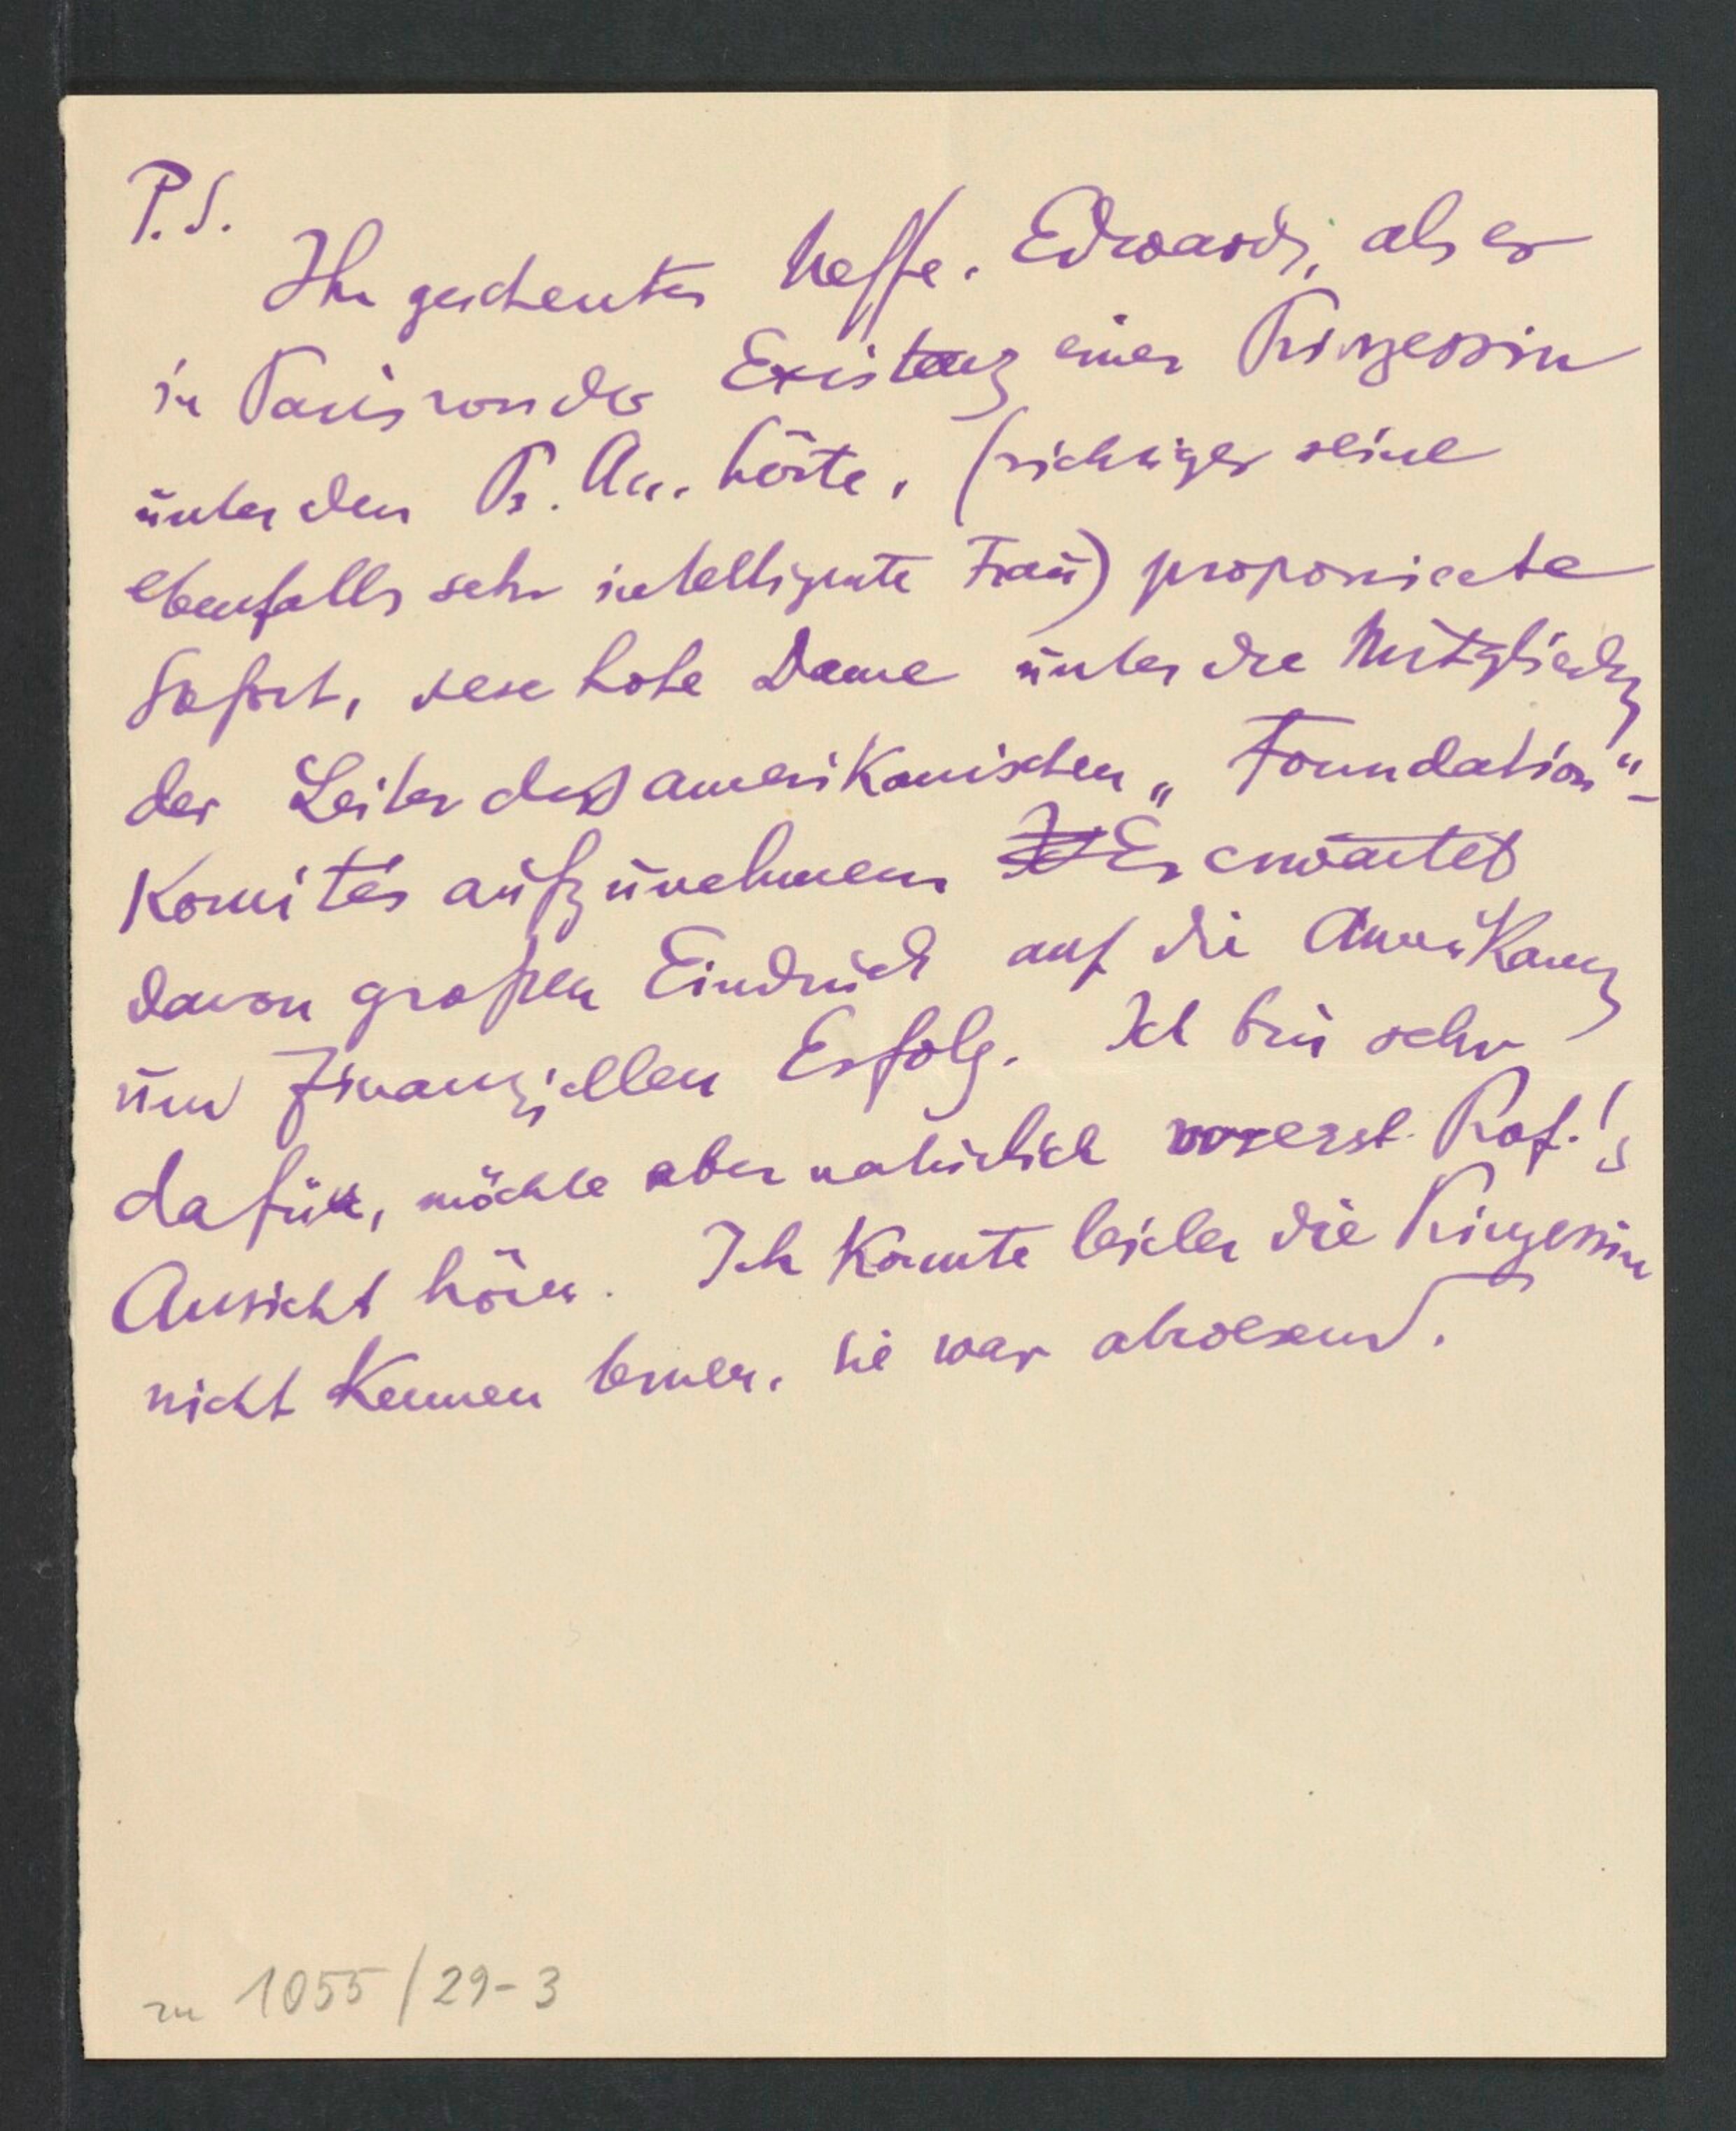 P.S.
Ihr gescheuter Neffe, Edward, als er
in Paris von der Existenz einer Prinzessin
unter den Ps. An. hörte, (richtiger seine
ebenfalls sehr intelligente Frau) proponierte
sofort, diese hohe Dame unter die Mitglieder
der Leiter des amerikanischen „Foundation"-
Komités aufzunehmen Er erwartet
davon großen Eindruck auf die Amerikaner
und finanziellen Erfolg. Ich bin sehr
dafür, möchte aber natürlich vorerst Prof.'s
Ansicht hören. Ich konnte leider die Prinzessin
nicht kennen lernen, sie war abwesend.
zu 1055/29-3